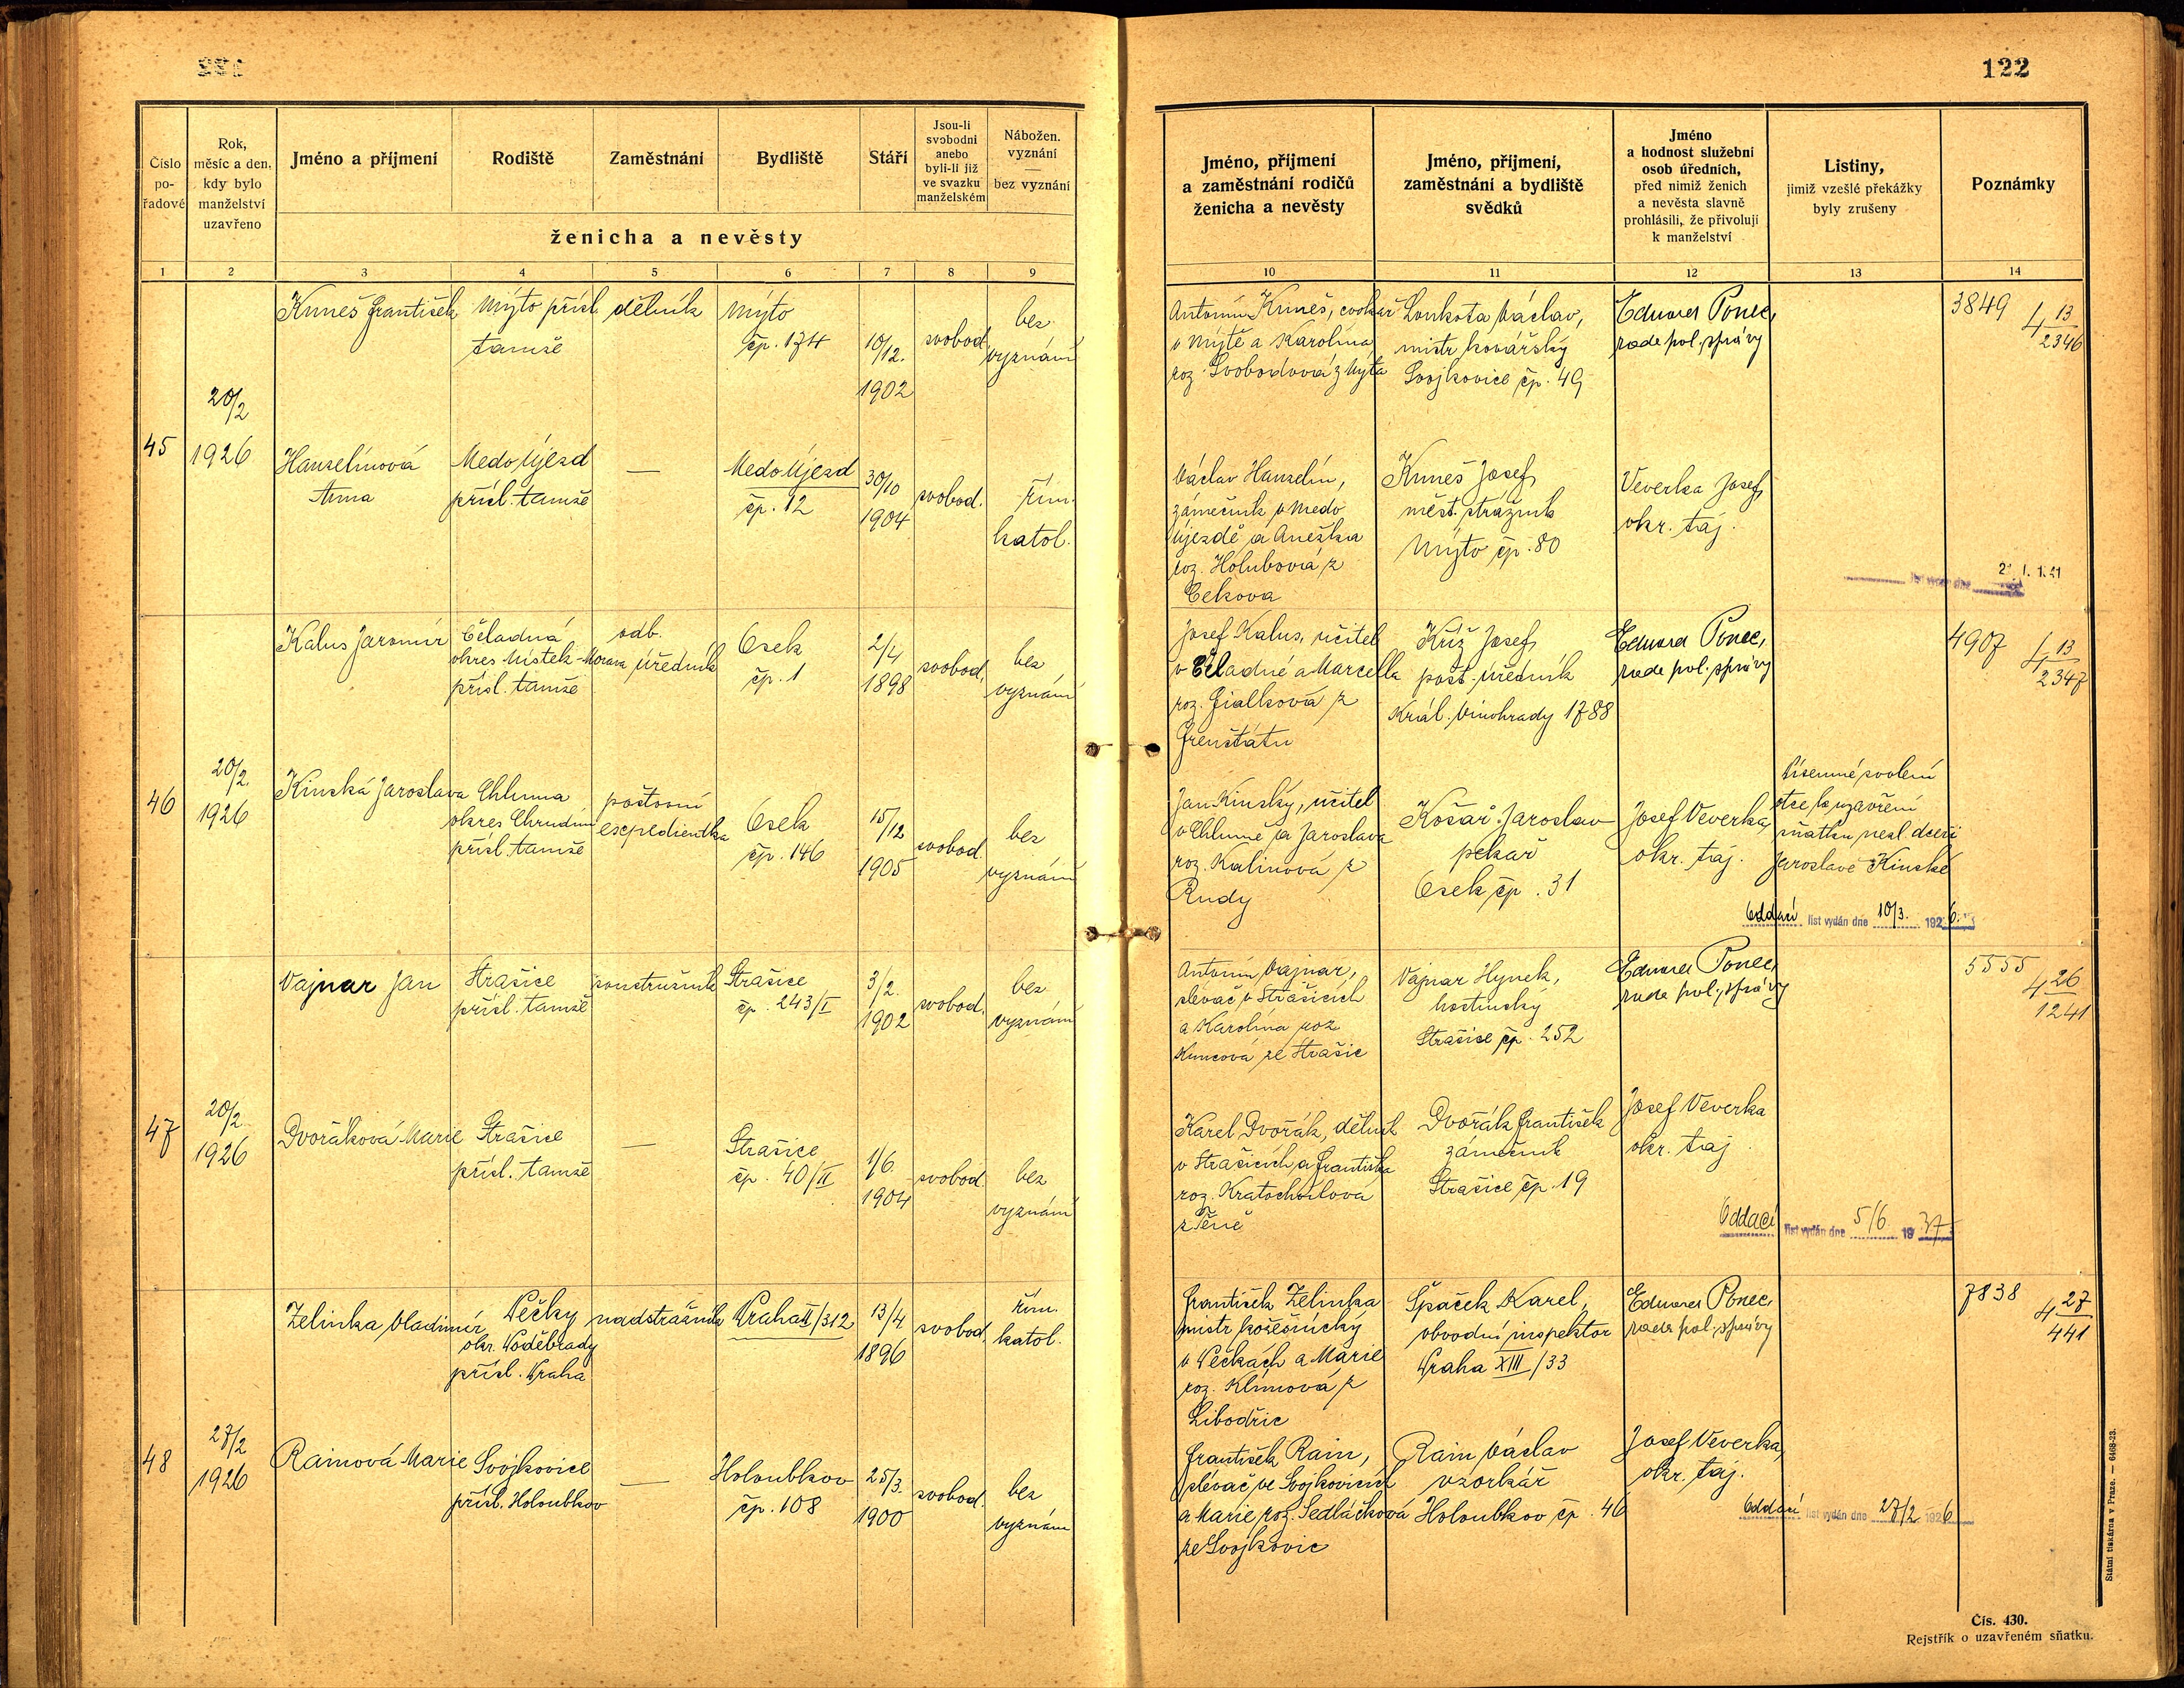 122
Číslo
po-
řadové
Rok,
měsíc a den,
kdy bylo
manželství
uzavřeno
Jméno a příjmení
Rodiště
Zaměstnání
Bydliště
Stáří
Jsou-li
svobodni
anebo
byli-li již
ve svazku
manželském
Nábožen.
vyznání
—
bez vyznání
ženicha a nevěsty
1 2 3 4 5 6 7 8 9
45
20/2
1926
Kuneš František
Mýto přísl.
tamže
dělník
Mýto
čp. 174
10/12.
1902
svobod.
bez
vyznání
Hanzelínová
Anna
Medo Újezd
přísl. tamže
—
Medo Újezd
čp. 12
30/10
1904
svobod.
řím.
katol.
46
20/2
1926
Kalus Jaromír
Čeladná
okres Místek-Morava
přísl. tamže
odb.
úředník
Osek
čp. 1
2/4
1898
svobod.
bez
vyznání
Kinská Jaroslava
Chlumna
okres Chrudim
přísl. tamže
poštovní
expedientka
Osek
čp. 146
15/12
1905
svobod.
bez
vyznání
47
20/2
1926
Vajnar Jan
Strašice
přísl. tamže
soustružník
Strašice
čp. 243/I
3/2.
1902
svobod.
bez
vyznání
Dvořáková Marie
Strašice
přísl. tamže
—
Strašice
čp. 40/II
1/6.
1904
svobod.
bez
vyznání
48
27/2
1926
Zelinka Vladimír
Pečky
okr. Poděbrady
přísl. Praha
nadstrážník
Praha II/312
13/4
1896
svobod.
řím.
katol.
Rainová Marie
Svojkovice
přísl. Holoubkov
—
Holoubkov
čp. 108
25/3.
1900
svobod.
bez
vyznání
122
Jméno, příjmení
a zaměstnání rodičů
ženicha a nevěsty
Jméno, příjmení,
zaměstnání a bydliště
svědků
Jméno
a hodnost služební
osob úředních,
před nimiž ženich
a nevěsta slavně
prohlásili, že přivolují
k manželství
Listiny,
jimiž vzešlé překážky
byly zrušeny
Poznámky
10 11 12 13 14
Antonín Kuneš, cvokař
v Mýtě a Karolína
roz. Svobodová z Mýta
Loukota Václav,
mistr kovářský
Svojkovice čp. 49
Eduard Ponec,
rada pol. správy
3849
4 13
2346
Václav Hanzelín,
zámečník v Medo
Újezdě a Anežka
roz. Holubová z
Cekova
Kuneš Josef,
měst. strážník
Mýto čp. 80
Veverka Josef,
okr. taj.
list vydán dne
Josef Kalus, učitel
v Čeladné a Marcella
roz. Fialková z
Frenštátu
Kříž Josef,
pošt. úředník
Král. Vinohrady 1788
Eduard Ponec,
rada pol. správy
4907
4 13
2347
Jan Kinský, učitel
v Chlumně a Jaroslava
roz. Kalinová z
Rudy
Košař Jaroslav
pekař
Osek čp. 31
Josef Veverka,
okr. taj.
Písemné svolení
otce k uzavření
sňatku nezl. dceři
Jaroslavě Kinské
Oddací list vydán dne 10/3. 1926.
Antonín Vajnar,
slévač v Strašicích
a Karolína roz.
Kuncová ze Strašic
Vajnar Hynek,
hostinský
Strašice čp. 252
Eduard Ponec,
rada pol. správy
5555
4 26
1241
Karel Dvořák, dělník
v Strašicích a Františka
roz. Kratochvílová
z Těně
Dvořák František
zámečník
Strašice čp. 19
Josef Veverka
okr. taj.
Oddací list vydán dne 5/6 1937
František Zelinka
mistr kožešnický
v Pečkách a Marie
roz. Klímová z
Libodřic
Špaček Karel,
obvodní inspektor
Praha XIII/33
Eduard Ponec,
rada pol. správy
7838
4 27
441
František Rain,
slévač ve Svojkovicích
a Marie roz. Sedláčková
ze Svojkovic
Rain Václav
vzorkář
Holoubkov čp. 46
Josef Veverka,
okr. taj.
Oddací list vydán dne 27/2 1926
Státní tiskárna v Praze. — 6468-23.
Čís. 430.
Rejstřík o uzavřeném sňatku.